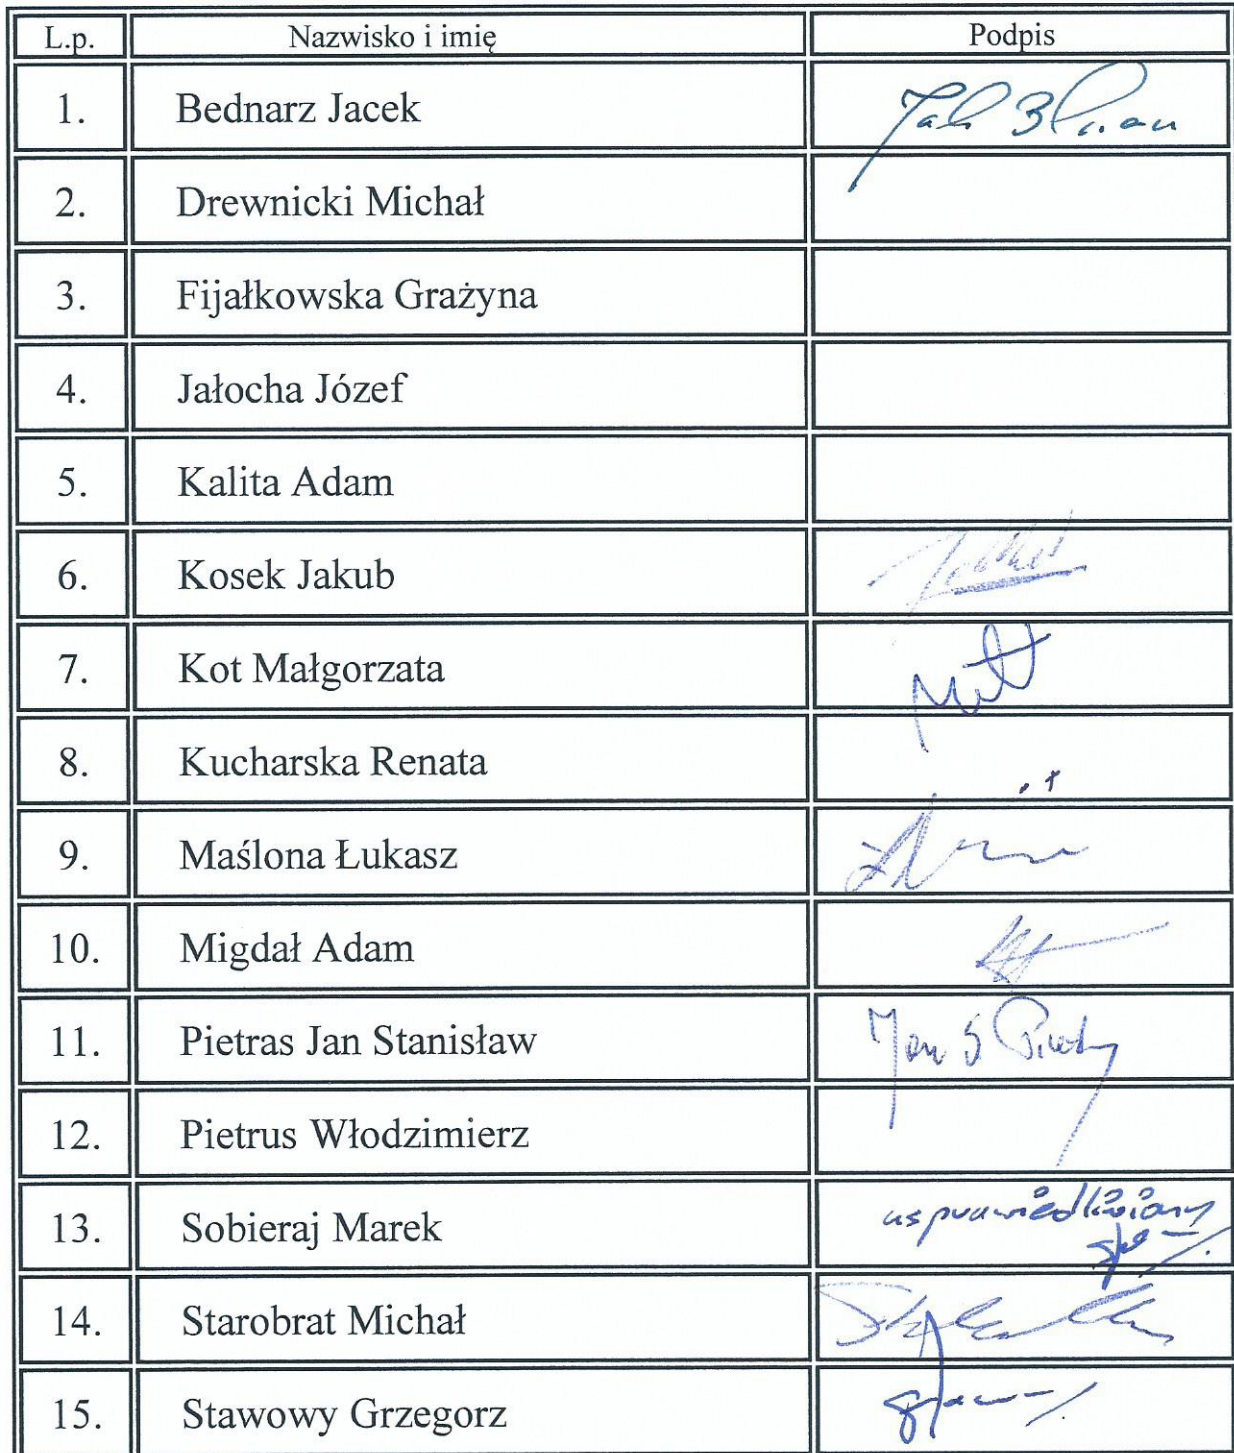 L.p. Nazwisko i imię Podpis
1. Bednarz Jacek
2. Drewnicki Michał
3. Fijałkowska Grażyna
4. Jałocha Józef
5. Kalita Adam
6. Kosek Jakub
7. Kot Małgorzata
8. Kucharska Renata
9. Maślona Łukasz
10. Migdał Adam
11. Pietras Jan Stanisław Jan S
12. Pietrus Włodzimierz
13. Sobieraj Marek usprawiedliwiony
14. Starobrat Michał
15. Stawowy Grzegorz